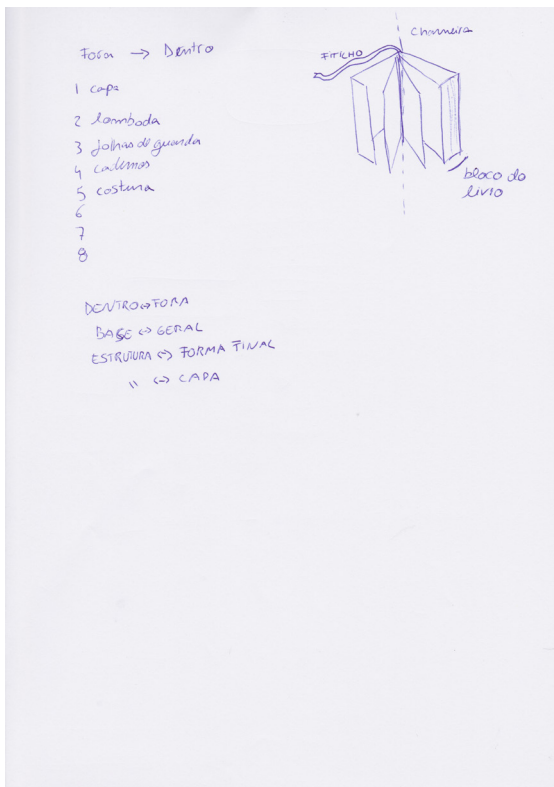 Fora → Dentro
1 capa
2 lombada
3 folhas de guarda
4 cadernos
5 costura
6
7
8
Charneira
FITILHO
bloco do
livro
DENTRO ↔ FORA
BASE ↔ GERAL
ESTRUTURA ↔ FORMA FINAL
" ↔ CAPA